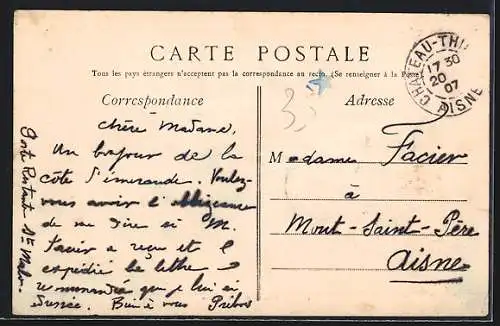 CARTE POSTALE
Tous les pays étrangers n'acceptent pas la correspondance au recto. (Se renseigner à la Poste)
Correspondance
Adresse
CHATEAU-THI
17 30
20
07
AISNE
3
Chère Madame,
Un bonjour de la
côte d'émeraude. Voulez-
vous avoir l'obligeance
de me dire si M.
Facier a reçu et
expédié la lettre
recommandée que je lui ai
adressée. Bien à vous
Poste Restante St Malo.
Madame Facier
à
Mont-Saint-Père
Aisne